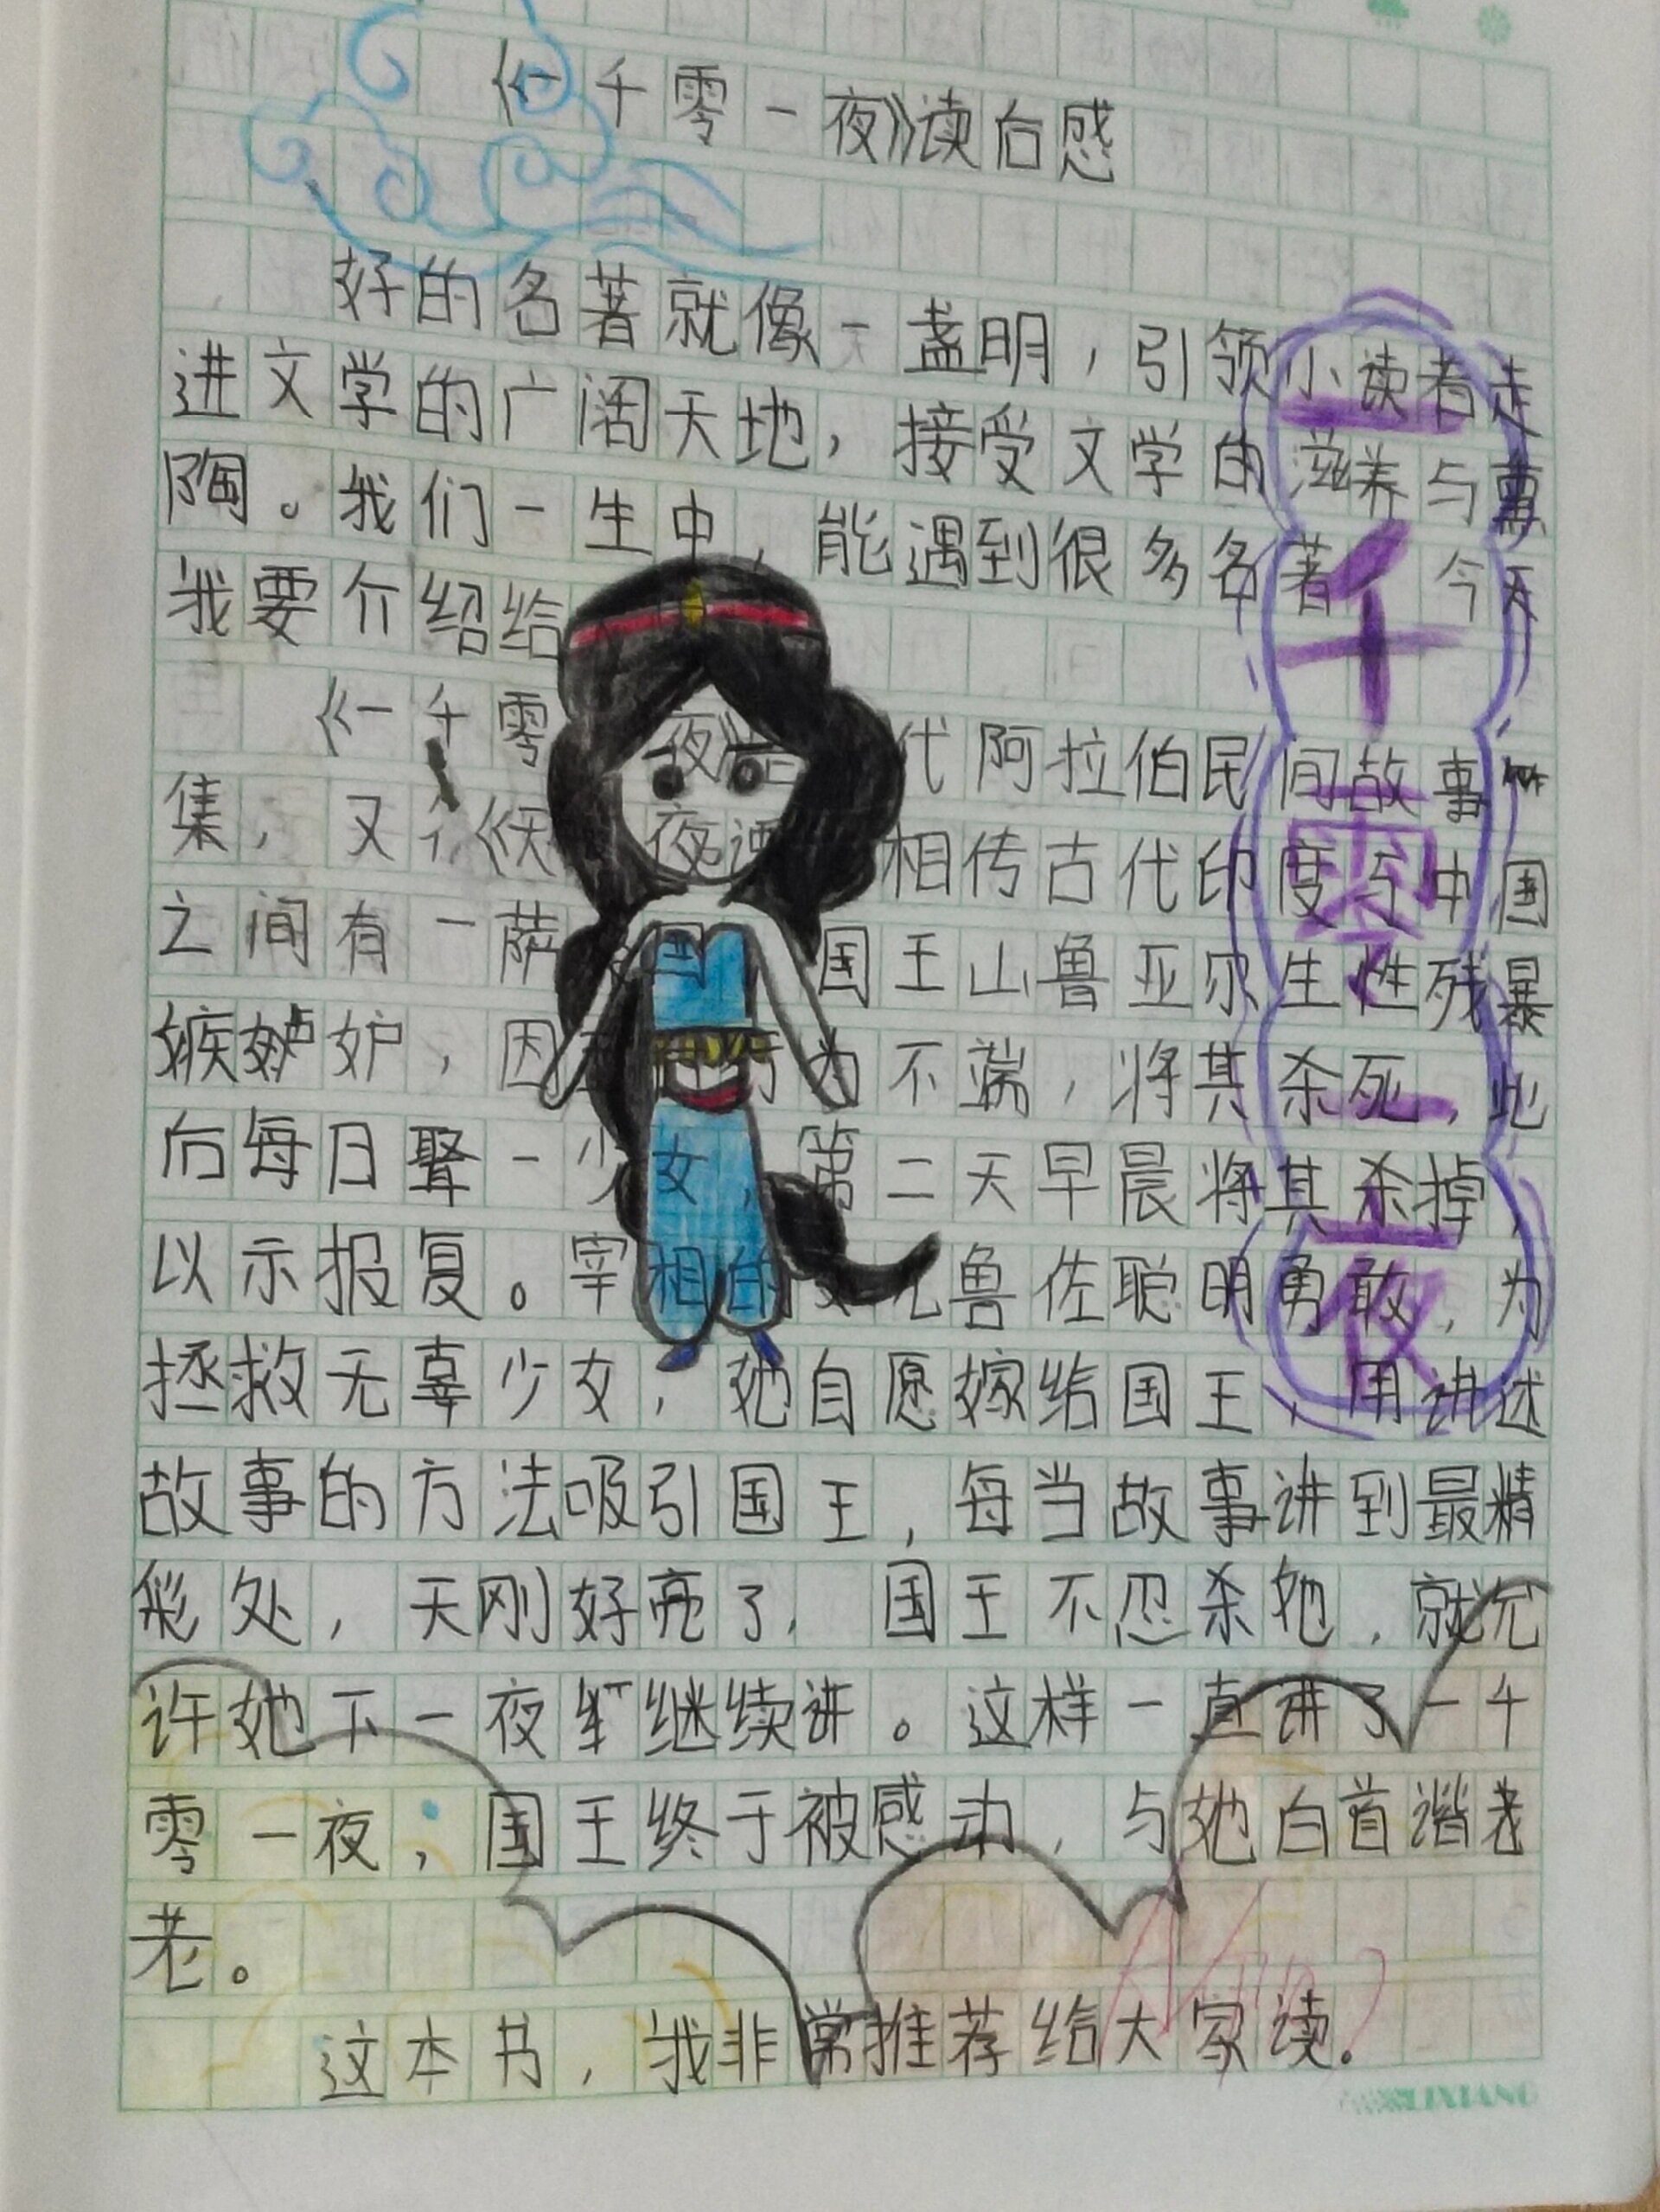 《一千零一夜》读后感
好的名著就像一盏明，引领小读者走
进文学的广阔天地，接受文学的滋养与熏
陶。我们一生中，能遇到很多名著 今天
我要介绍给
《一千零 夜》 代阿拉伯民间故事
集，又 《天 夜谭 相传古代印度与中国
之间有一萨 国 国王山鲁亚尔生性残暴
嫉妒，因 为不端，将其杀死，此
后每日娶一少女，第二天早晨将其杀掉，
以示报复。宰相的 鲁佐聪明勇敢，为
拯救无辜少女，她自愿嫁给国王，用讲述
故事的方法吸引国王，每当故事讲到最精
彩处，天刚好亮了，国王不忍杀她，就允
许她下一夜继续讲。这样一直讲了一千
零一夜，国王终于被感动，与她白首谐老
老。
这本书，我非常推荐给大家读。
一千零一夜